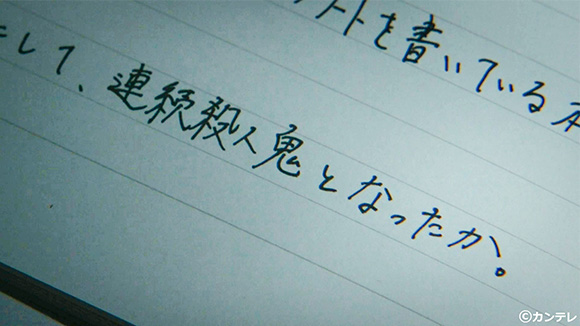 ノートを書いている
して、連続殺人鬼となったか。
©カンテレ